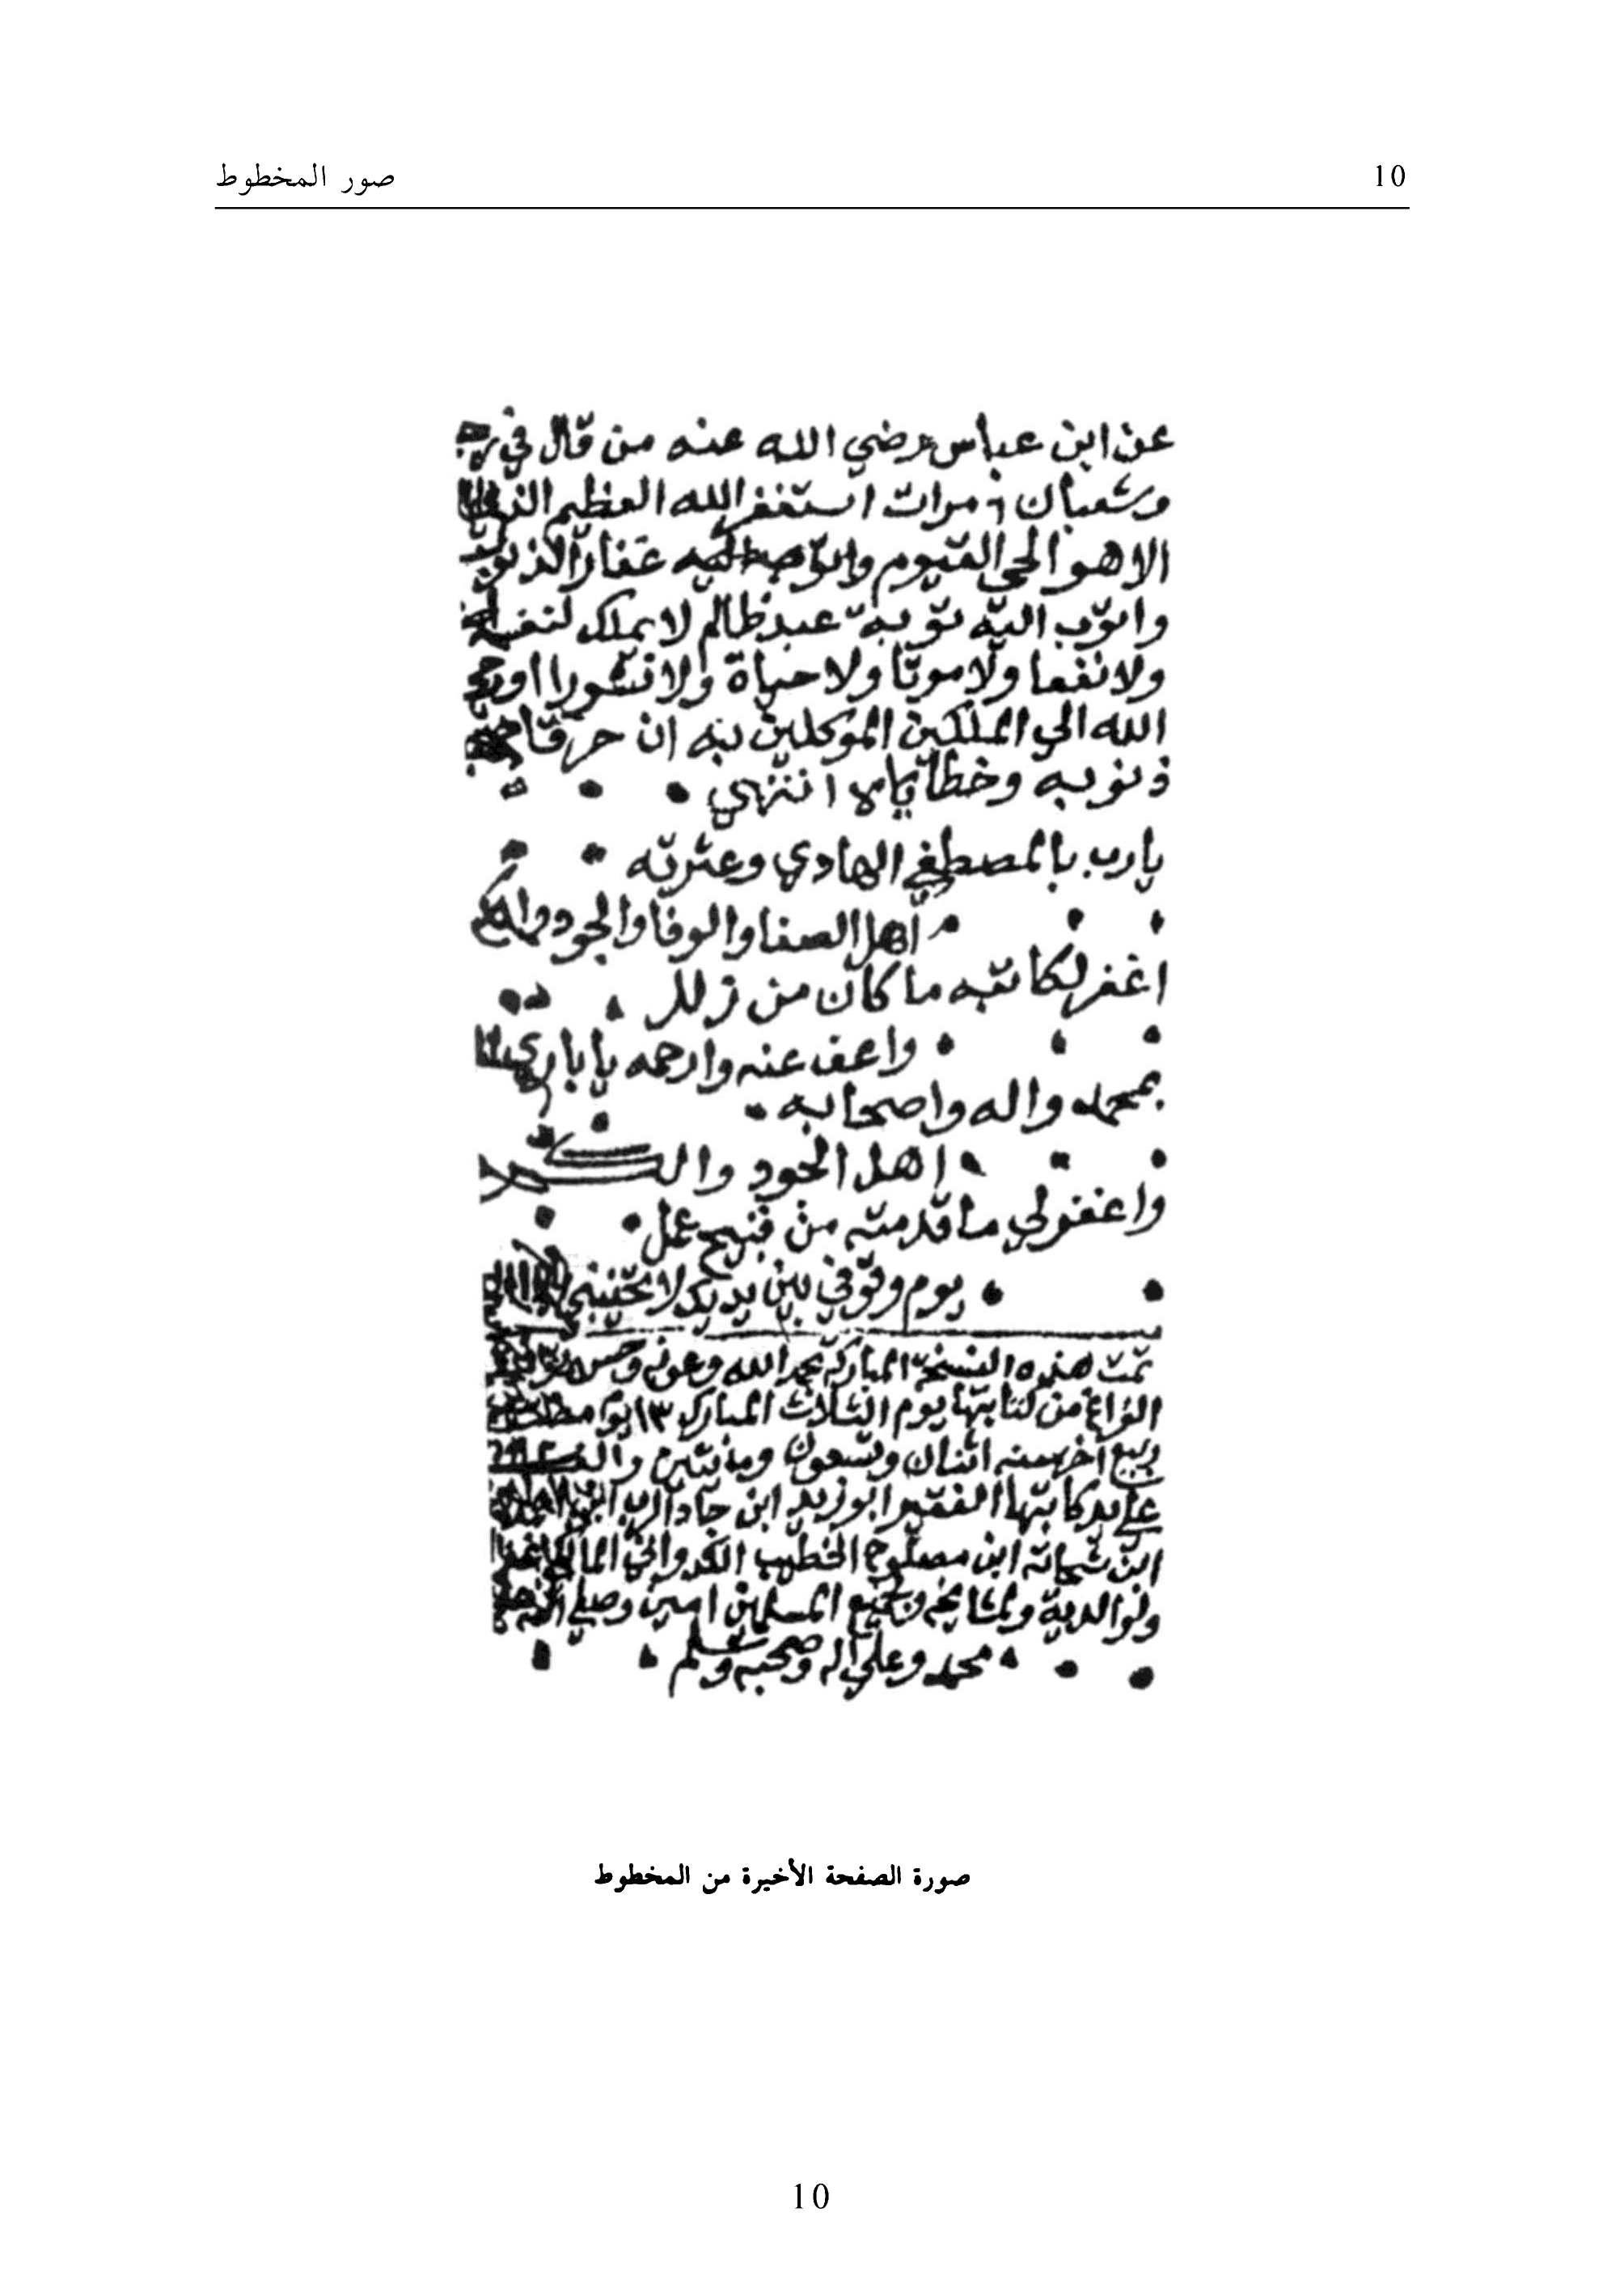 10
صور المخطوط
عن ابن عباس رضي الله عنه من قال في رجب
وشعبان ٧ مرات استغفر الله العظيم الذي لا اله
الا هو الحي القيوم واتوب اليه غفار الذنوب
واتوب اليه توبة عبد ظالم لا يملك لنفسه
ولا نفعا ولا موتا ولا حياة ولا نشورا اوحي
الله الي الملكين الموكلين به ان حرقا
ذنوبه وخطاياه انتهي
يارب بالمصطفي الهادي وعترته
اهل الصفا والوفا والجود والكرم
اغفر لكاتبه ما كان من زلل
واعف عنه وارحمه يا باري
بمحمد واله واصحابه
اهل الجود والكرم
واغفر لي ما قدمته من قبيح عمل
يوم وقوفي بين يديك لا تخيبني
تمت هذه النسخة المباركة بحمد الله وعونه وحسن توفيقه
الفراغ من كتابتها يوم الثلاث المبارك ١٣ يوم
ربيع اخر سنه اثنان وتسعون ومائتين والف
علي يد كاتبها الفقير ابو زيد ابن جاد
ابن شحاته ابن مصلوح الخطيب المالكي غفر
ولوالديه ولمشايخه ولجميع المسلمين امين وصلي الله
محمد وعلي آله وصحبه وسلم
صورة الصفحة الأخيرة من المخطوط
10